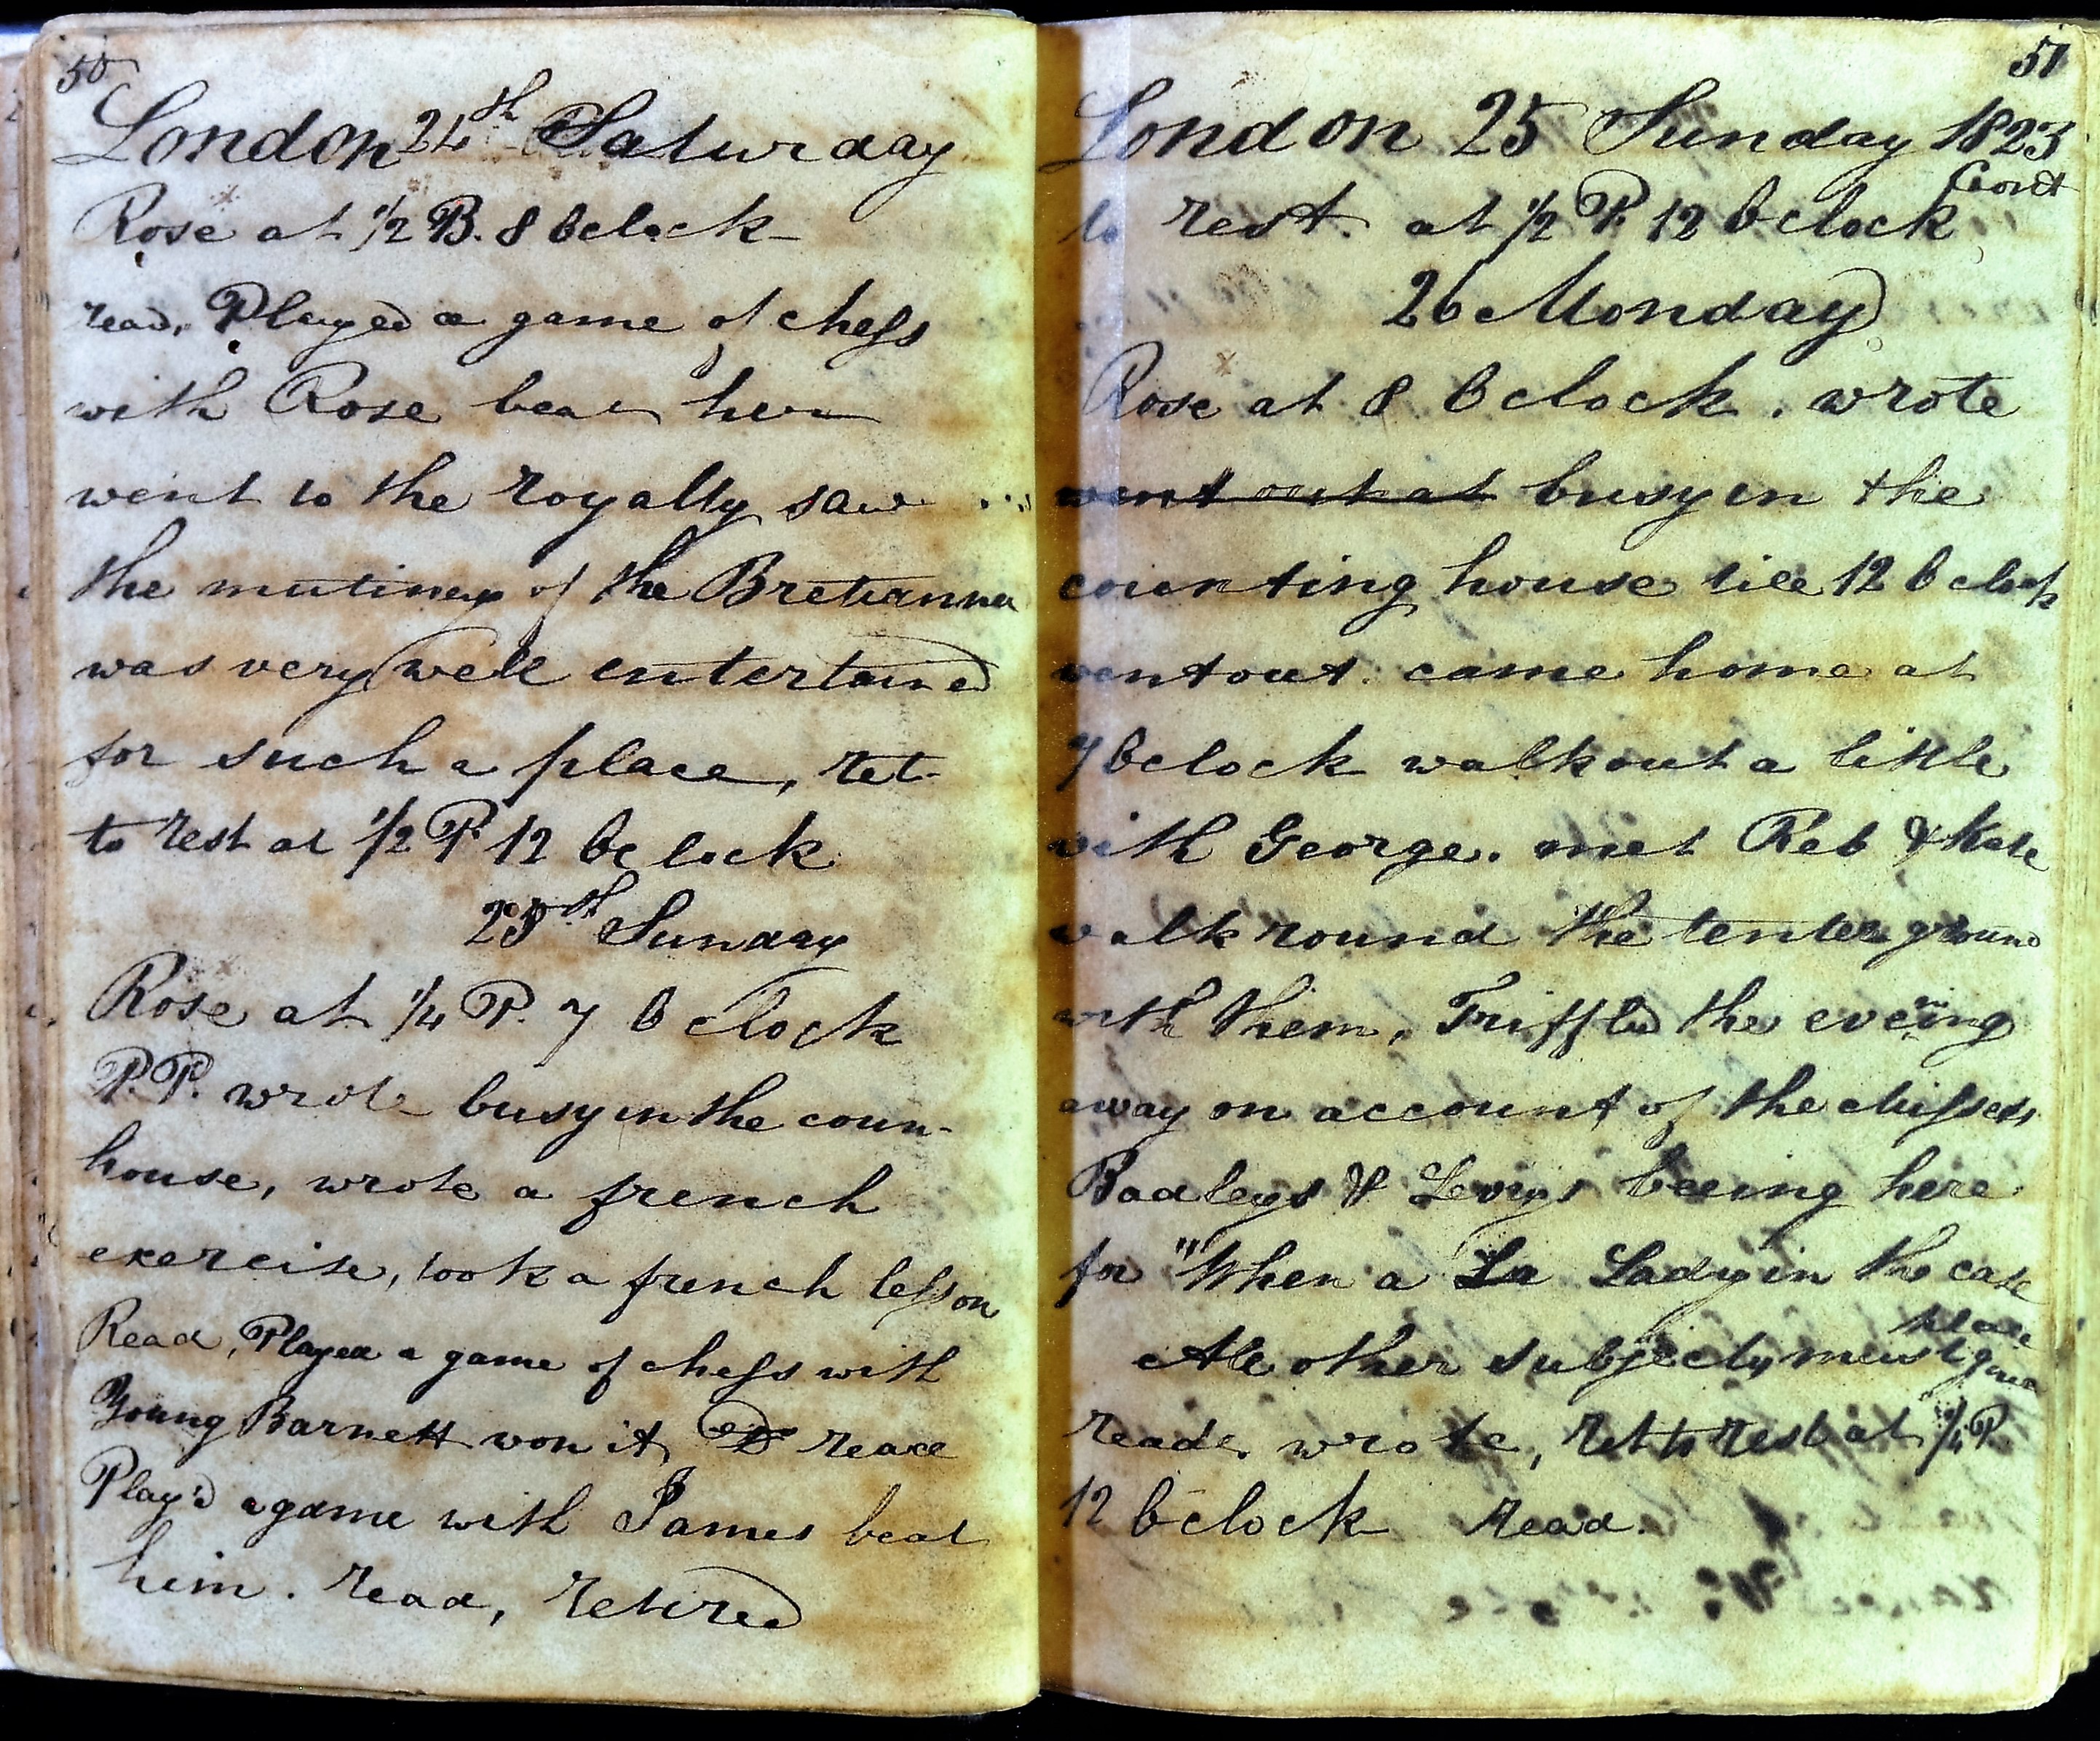 50
London 24th Saturday
Rose at 1/2 B. 8 Oclock
read, Played a game of chess
with Rose beat her
went to the royalty saw
the mutiney of the Bretanna
was very well entertained
for such a place, ret.
to rest at 1/2 P 12 Oclock
25th Sunday
Rose at 1/4 P. 7 Oclock
P.P. wrote busy in the coun-
house, wrote a french
exercise, took a french lesson
Read, Played a game of chess with
Young Barnett won it read
Play'd a game with James beat
him. read, retired
51
London 25 Sunday 1823
Cont
to rest. at 1/2 P. 12 Oclock
26 Monday
Rose at 8 Oclock. wrote
went out at busy in the
counting house till 12 Oclock
went out. came home at
7 Oclock walk out a little
with George. met Reb & Kate
walk round the tenter ground
with them, Triffled the evening
away on account of the Misses
Badleys & Levys beeing here
for "When a La Lady in the case
All other subjects must give
place
read. wrote, ret to rest at 1/4 P
12 Oclock Read.